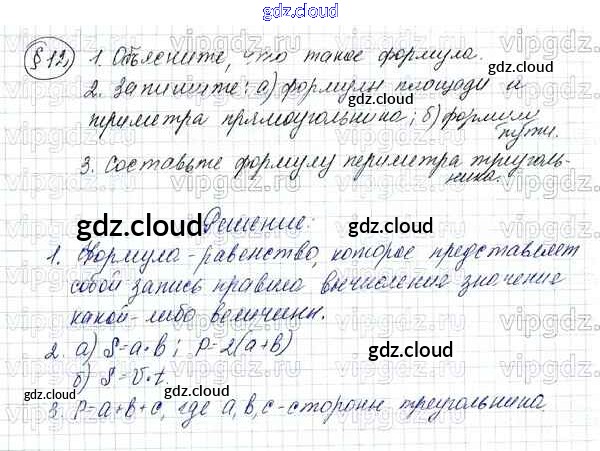 gdz.cloud
§12, 1. Объясните, что такое формула.
2. Запишите: а) формулы площади и
периметра прямоугольника; б) формулу
пути.
3. Составьте формулу периметра треуголь-
ника.
Решение:
1. Формула - равенство, которое представляет
собой запись правила вычисления значения
какой-либо величины.
2. а) S=a·b; P=2(a+b)
б) S=V·t.
3. P=a+b+c, где a,b,c-стороны треугольника